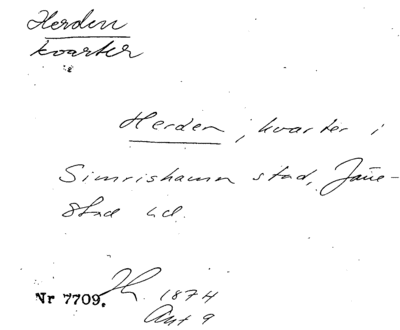 Herden
kvarter
Herden, kvarter i
Simrishamn stad, Järre-
stad hd.
Nr 7709. Jh. 1874
Ant 9